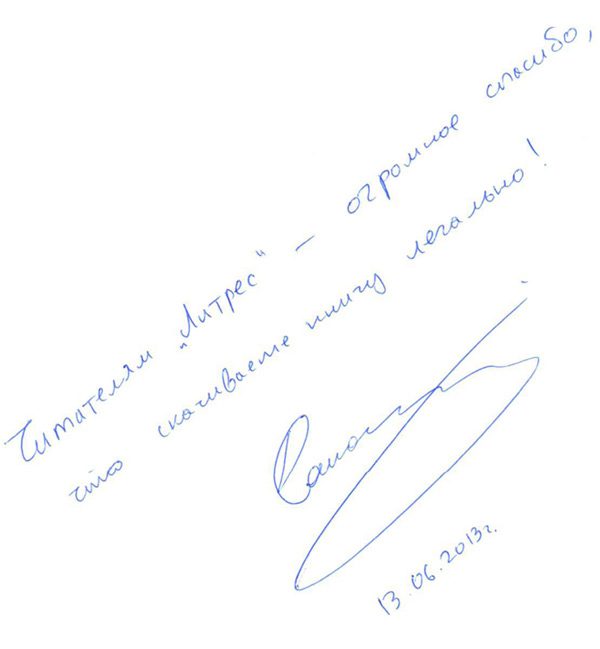 Читателям „Литрес“ – огромное спасибо,
что скачиваете книгу легально!
13.06.2013г.